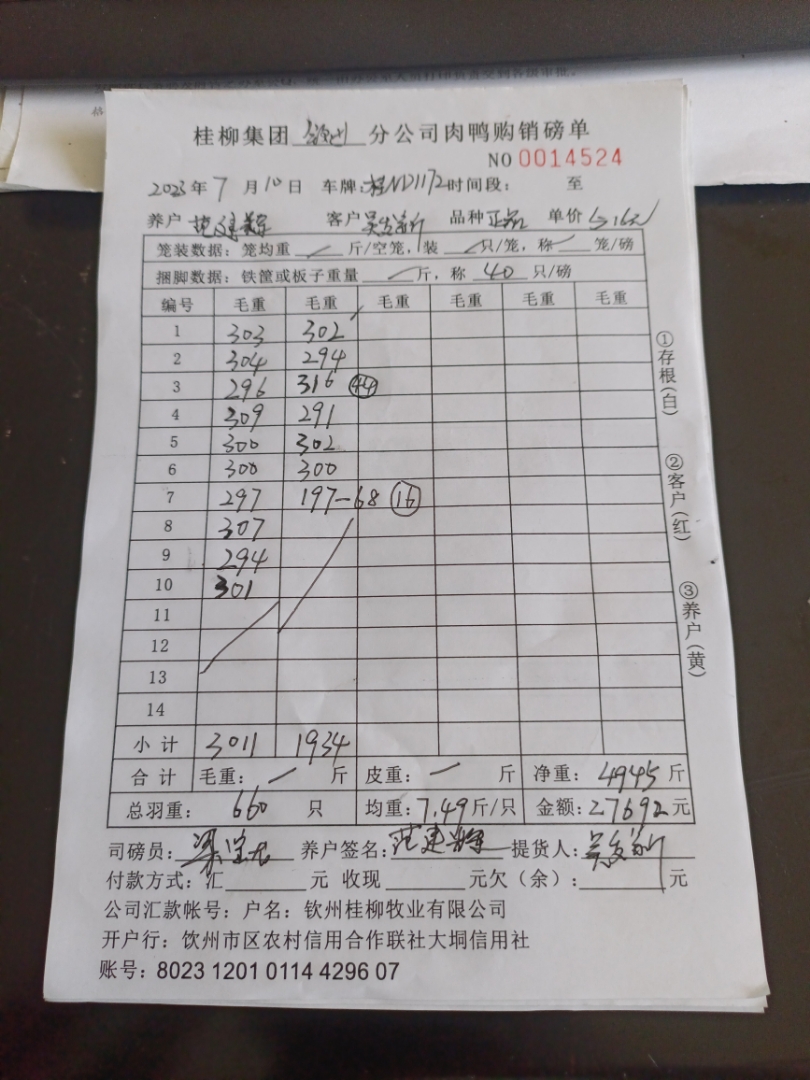 桂柳集团 钦州 分公司肉鸭购销磅单
NO 0014524
2023年7月10日 车牌：桂ND1172 时间段： 至
养户 范建辉 客户 吴发新 品种 正品 单价
笼装数据：笼均重 斤/空笼，装 只/笼，称 笼/磅
捆脚数据：铁筐或板子重量 斤，称 40 只/磅
编号 毛重 毛重 毛重 毛重 毛重 毛重
1 303 302
2 304 294
3 296 316 44
4 309 291
5 300 302
6 300 300
7 297 197-68 16
8 307
9 294
10 301
11
12
13
14
小计 3011 1934
合计 毛重： 斤 皮重： 斤 净重：4945斤
总羽重：660 只 均重：7.49斤/只 金额：27692元
司磅员： 养户签名：范建辉 提货人：吴发新
付款方式：汇 元 收现 元欠（余）： 元
公司汇款帐号：户名：钦州桂柳牧业有限公司
开户行：饮州市区农村信用合作联社大垌信用社
账号：8023 1201 0114 4296 07
①存根（白）
②客户（红）
③养户（黄）